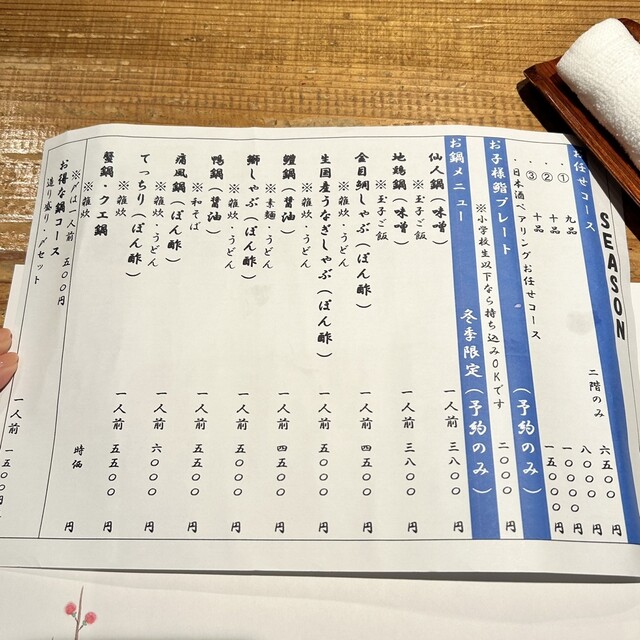 SEASON
お任せコース
二階のみ
・① 九品 六五〇〇円
・② 十品 八〇〇〇円
・③ 十品 一〇〇〇〇円
・日本酒ペアリングお任せコース 一五〇〇〇円
お子様鮨プレート(予約のみ)
※小学校生以下なら持ち込みOKです 二〇〇〇円
お鍋メニュー 冬季限定(予約のみ)
仙人鍋(味噌) 一人前 三八〇〇円
※玉子ご飯
地鶏鍋(味噌) 一人前 三八〇〇円
※玉子ご飯
金目鯛しゃぶ(ぽん酢) 一人前 四五〇〇円
※雑炊・うどん
生国産うなぎしゃぶ(ぽん酢) 一人前 五五〇〇円
※雑炊・うどん
鱧鍋(醤油) 一人前 四五〇〇円
※素麺・うどん
鰤しゃぶ(ぽん酢) 一人前 五五〇〇円
※雑炊・うどん
鴨鍋(醤油) 一人前 五五〇〇円
※和そば
痛風鍋(ぽん酢) 一人前 六〇〇〇円
※雑炊・うどん
てっちり(ぽん酢) 一人前 五五〇〇円
※雑炊
蟹鍋・クエ鍋 時価 円
※雑炊
※〆は一人前 五〇〇円
お得な鍋コース
造り盛り・〆セット 一人前 一五〇〇円